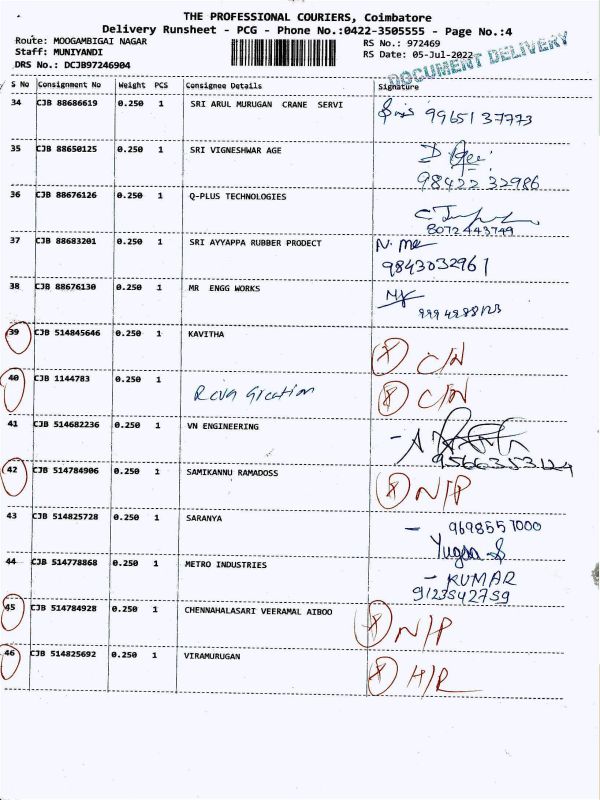 THE PROFESSIONAL COURIERS, Coimbatore
Delivery Runsheet - PCG - Phone No.:0422-3505555 - Page No.:4
Route: MOOGAMBIGAI NAGAR RS No.: 972469
Staff: MUNIYANDI RS Date: 05-Jul-2022
DRS No.: DCJB97246904
DOCUMENT DELIVERY
S No Consignment No Weight PCS Consignee Details Signature
34 CJB 88686619 0.250 1 SRI ARUL MURUGAN CRANE SERVI 99651 37773
35 CJB 88650125 0.250 1 SRI VIGNESHWAR AGE
98422 32986
36 CJB 88676126 0.250 1 Q-PLUS TECHNOLOGIES
8072443749
37 CJB 88683201 0.250 1 SRI AYYAPPA RUBBER PRODECT
9843032961
38 CJB 88676130 0.250 1 MR ENGG WORKS
39 CJB 514845646 0.250 1 KAVITHA
C/N
40 CJB 1144783 0.250 1
C/N
41 CJB 514682236 0.250 1 VN ENGINEERING
9566353124
42 CJB 514784906 0.250 1 SAMIKANNU RAMADOSS
N/P
43 CJB 514825728 0.250 1 SARANYA
- 9698557000
44 CJB 514778868 0.250 1 METRO INDUSTRIES
- KUMAR
9123542759
45 CJB 514784928 0.250 1 CHENNAHALASARI VEERAMAL AIBOO
N/P
46 CJB 514825692 0.250 1 VIRAMURUGAN
H/R